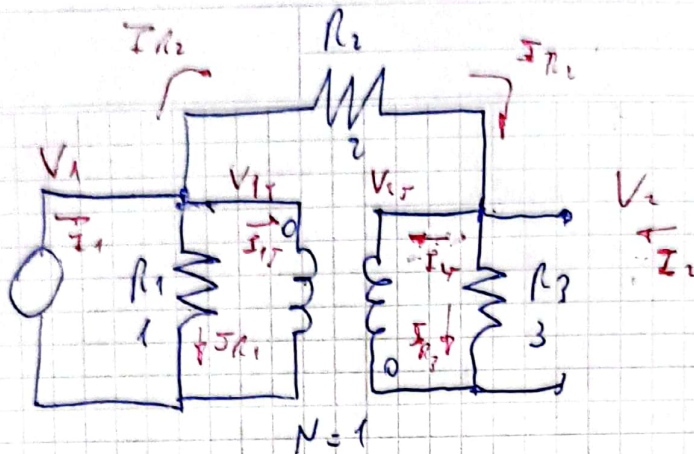 I R2
R2
I R2
2
V1
V1T
V2T
V2
I1
I1T
I2T
I2
R1
R3
1
IR1
IR3
3
N = 1